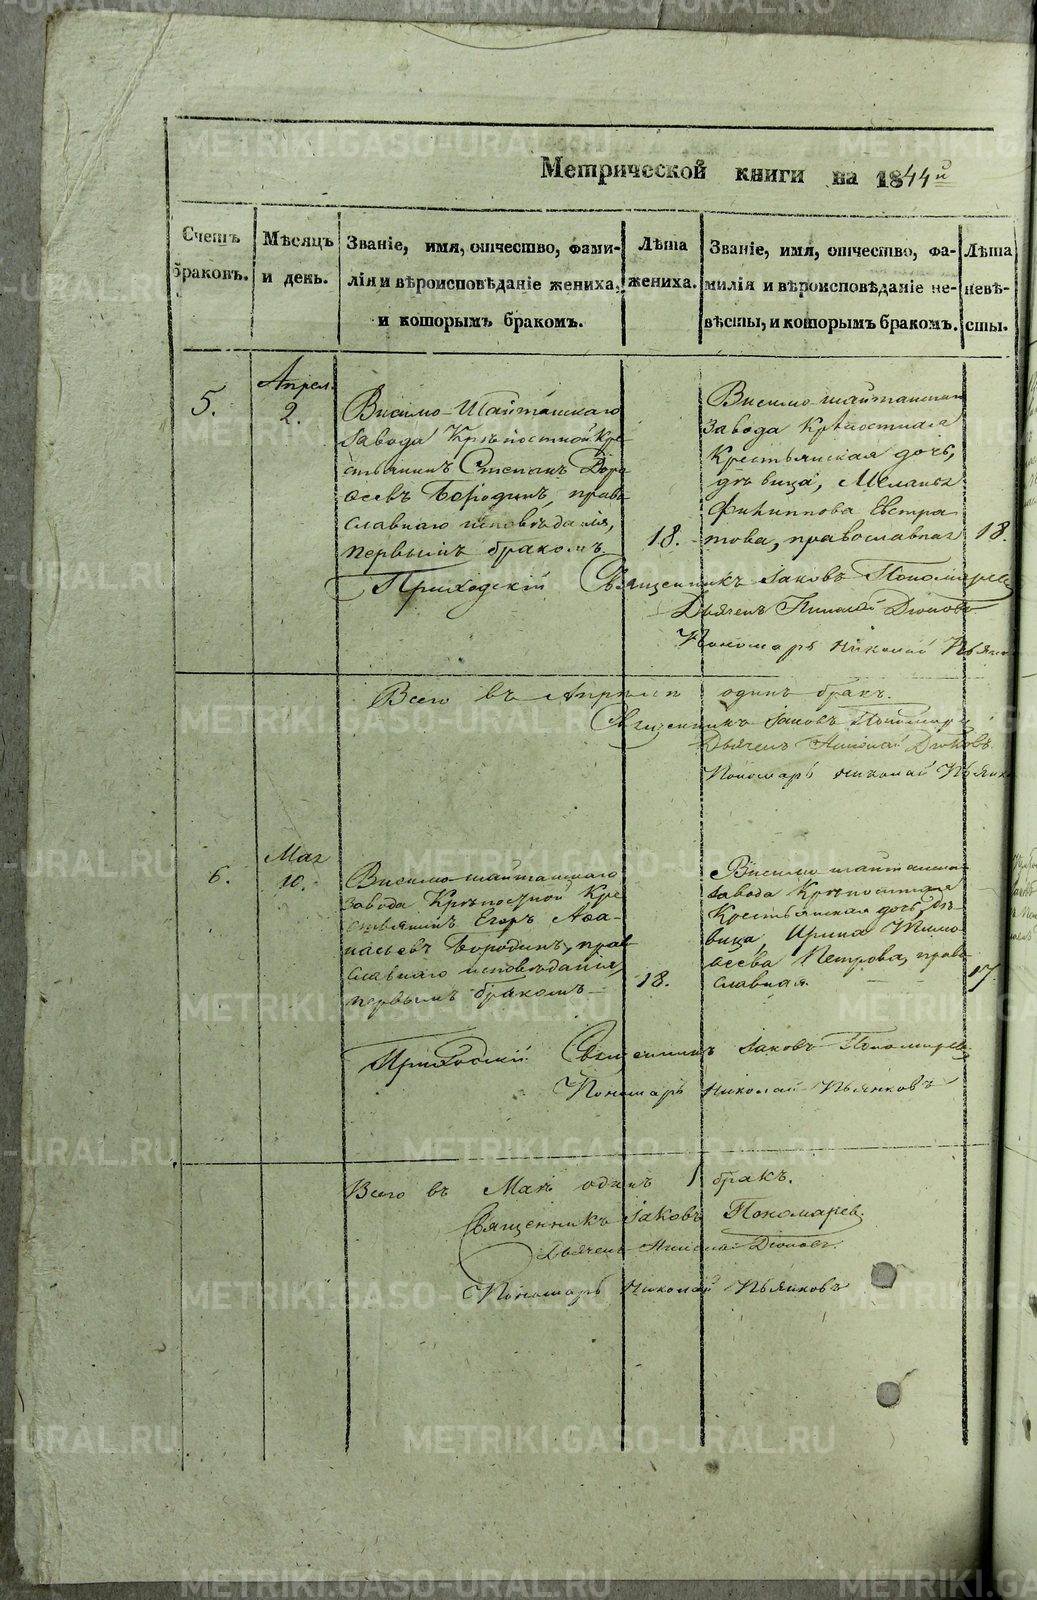 Метрической книги на 1844й
Счетъ браковъ.
Мѣсяцъ и день.
Званіе, имя, отчество, фами-
лія и вѣроисповѣданіе жениха,
и которымъ бракомъ.
Лѣта
жениха.
Званіе, имя, отчество, фа-
милія и вѣроисповѣданіе не-
вѣсты, и которымъ бракомъ.
Лѣта
невѣ-
сты.
5.
Апрел.
2.
Висимо-Шайтанскаго
завода Крѣпостной Кре-
стьянинъ Степанъ Доро
ѳеевъ Бородинъ, право
славнаго исповѣданія,
первымъ бракомъ
18.
Висимо-шайтанскаго
завода Крѣпостнаго
Крестьянская дочь,
дѣвица, Меланья
Филиппова Евстра
това, православная
18.
Приходскій Священникъ Іаковъ Пономаревъ
Дьячекъ Николай Діоновъ
Пономарь Николай Пьянк
Всего въ Апрѣлѣ одинъ бракъ.
Священникъ Іаковъ Пономаре
Дьячекъ Николай Діоновъ
Пономарь Николай Пьянко
6.
Мая
10.
Висимо-шайтанскаго
завода Крѣпостной Кре
стьянинъ Егоръ Аѳа-
насьевъ Бородинъ, прав
славнаго исповѣданія,
первымъ бракомъ
18.
Висимо шайтанска
завода Крѣпостная
Крестьянская дочь, дѣ-
вица, Ирина Тимо
ѳеева Петрова, право
славная.
17
Приходскій Священникъ Іаковъ Пономаревъ
Пономарь Николай Пьянковъ
Всего въ Маѣ одинъ 1 бракъ.
Священникъ Іаковъ Пономаревъ
Дьячекъ Николай Діоновъ
Пономарь Николай Пьянковъ
METRIKI.GASO-URAL.RU